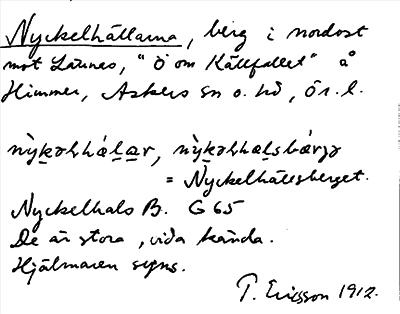 Nyckelhällarna, berg i nordost
mot Lännes, "Ö om Källfallet" å
Himmer, Askers sn o. hd, Ör. l.
= Nyckelhällsberget.
Nyckelhals B. G 65
De är stora, vida kända.
Hjälmaren syns.
T. Ericsson 1912.